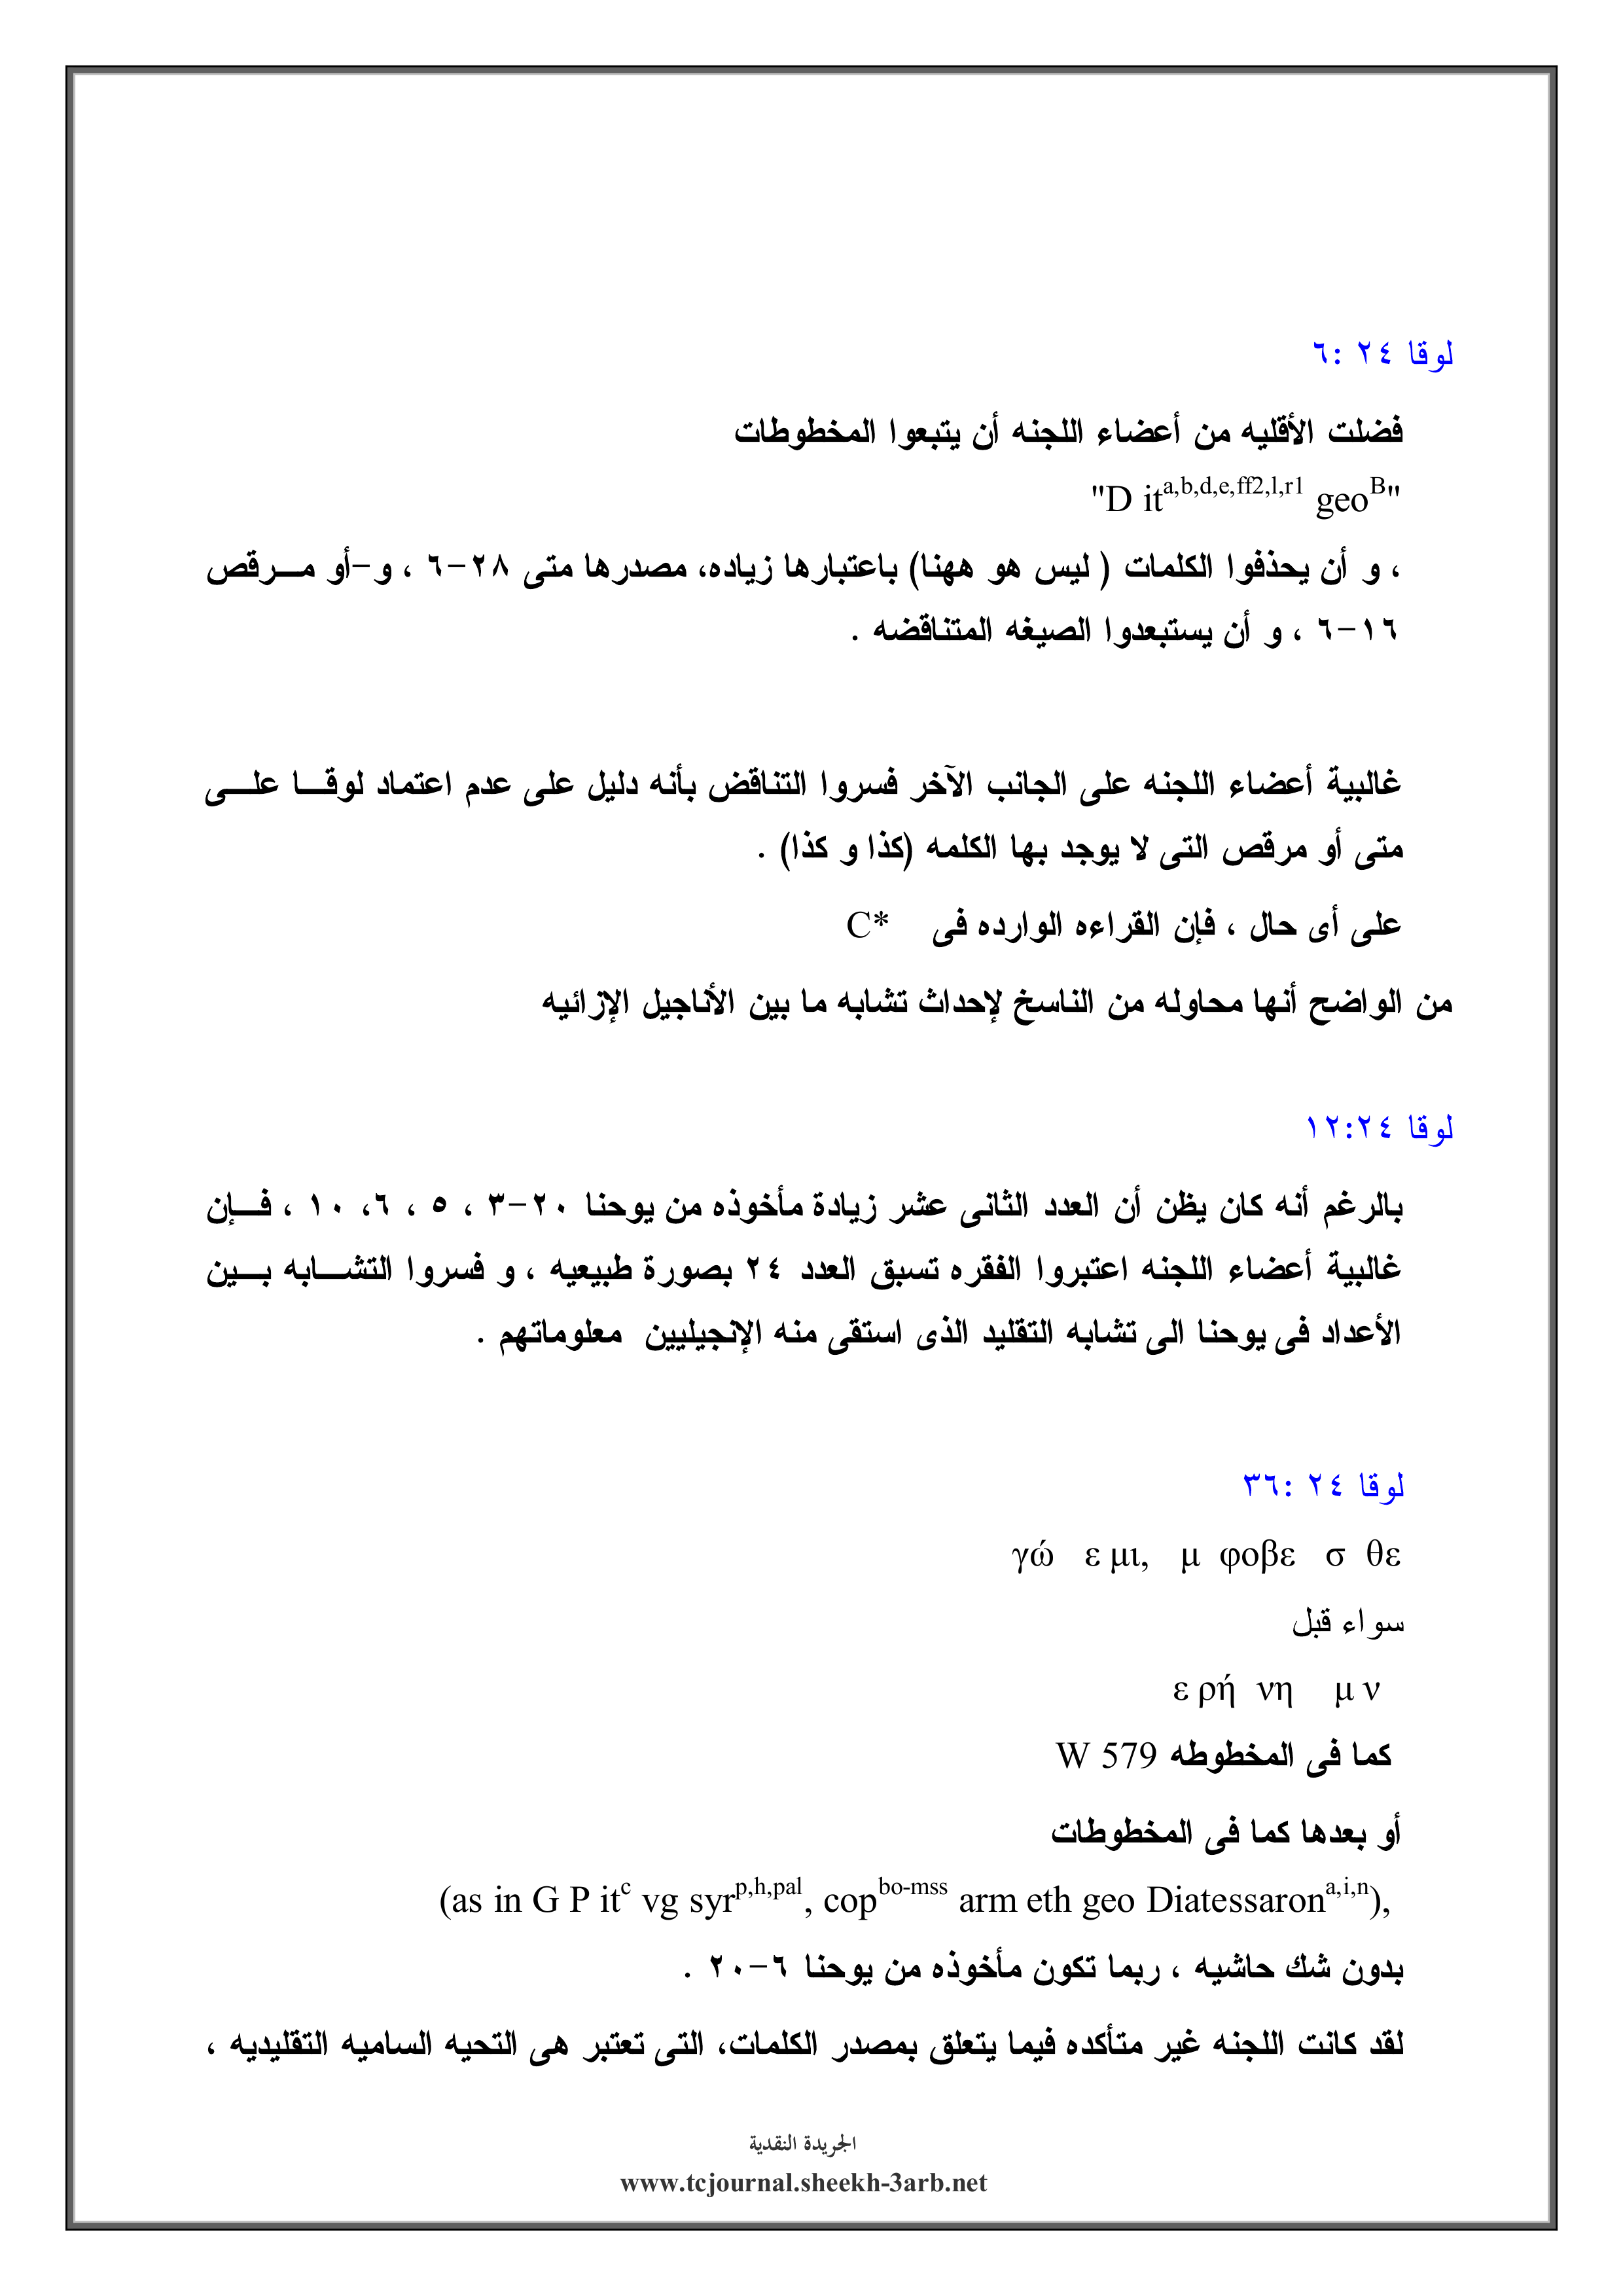 لوقا ٢٤ :٦
فضلت الأقليه من أعضاء اللجنه أن يتبعوا المخطوطات
"D it^a,b,d,e,ff2,l,r1 geo^B"
، و أن يحذفوا الكلمات ( ليس هو ههنا) باعتبارها زياده، مصدرها متى ٢٨-٦ ، و-أو مـــرقص
١٦-٦ ، و أن يستبعدوا الصيغه المتناقضه .
غالبية أعضاء اللجنه على الجانب الآخر فسروا التناقض بأنه دليل على عدم اعتماد لوقـــا علـــى
متى أو مرقص التى لا يوجد بها الكلمه (كذا و كذا) .
على أى حال ، فإن القراءه الوارده فى C*
من الواضح أنها محاوله من الناسخ لإحداث تشابه ما بين الأناجيل الإزائيه
لوقا ١٢:٢٤
بالرغم أنه كان يظن أن العدد الثانى عشر زيادة مأخوذه من يوحنا ٢٠-٣ ، ٥ ، ٦، ١٠ ، فـــإن
غالبية أعضاء اللجنه اعتبروا الفقره تسبق العدد ٢٤ بصورة طبيعيه ، و فسروا التشـــابه بـــين
الأعداد فى يوحنا الى تشابه التقليد الذى استقى منه الإنجيليين معلوماتهم .
لوقا ٢٤ :٣٦
γώ ε μι, μ φοβε σ θε
سواء قبل
ε ρή νη μ ν
كما فى المخطوطه W 579
أو بعدها كما فى المخطوطات
(as in G P it^c vg syr^p,h,pal, cop^bo-mss arm eth geo Diatessaron^a,i,n),
بدون شك حاشيه ، ربما تكون مأخوذه من يوحنا ٦-٢٠ .
لقد كانت اللجنه غير متأكده فيما يتعلق بمصدر الكلمات، التى تعتبر هى التحيه الساميه التقليديه ،
الجريدة النقدية
www.tcjournal.sheekh-3arb.net